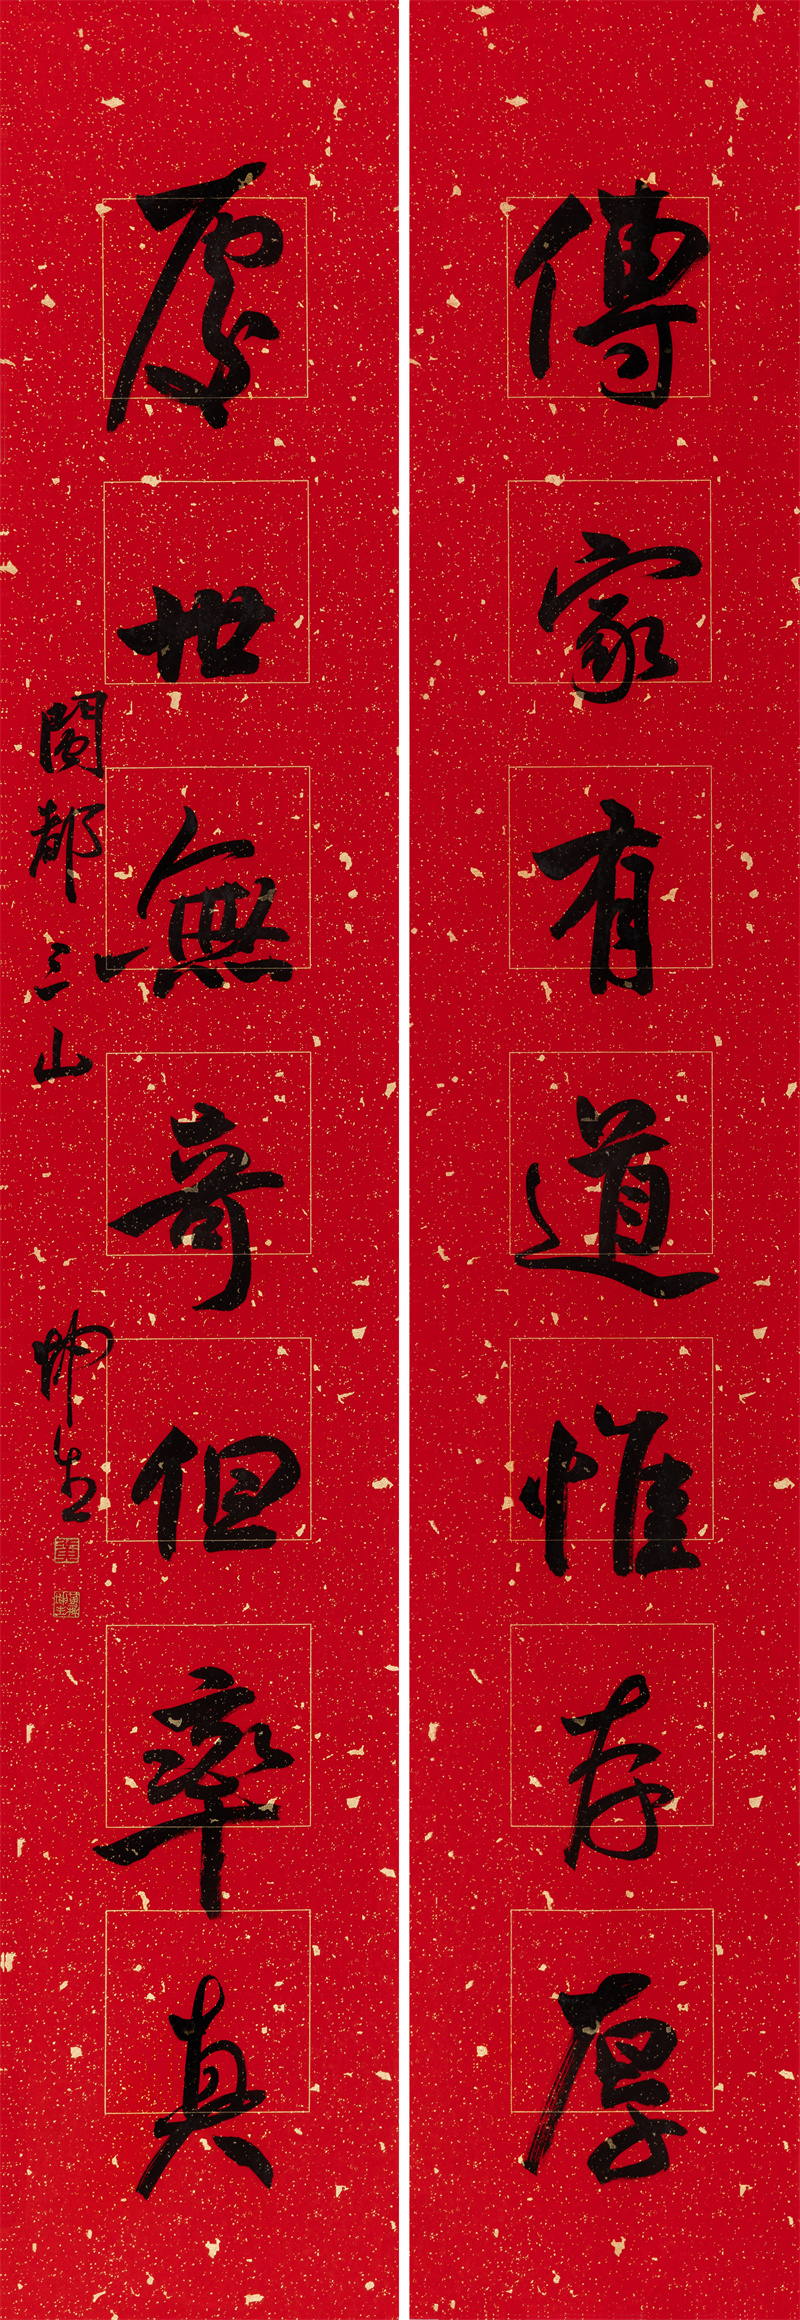 傳家有道惟存厚
處世無奇但率真
閩都三山 坤生